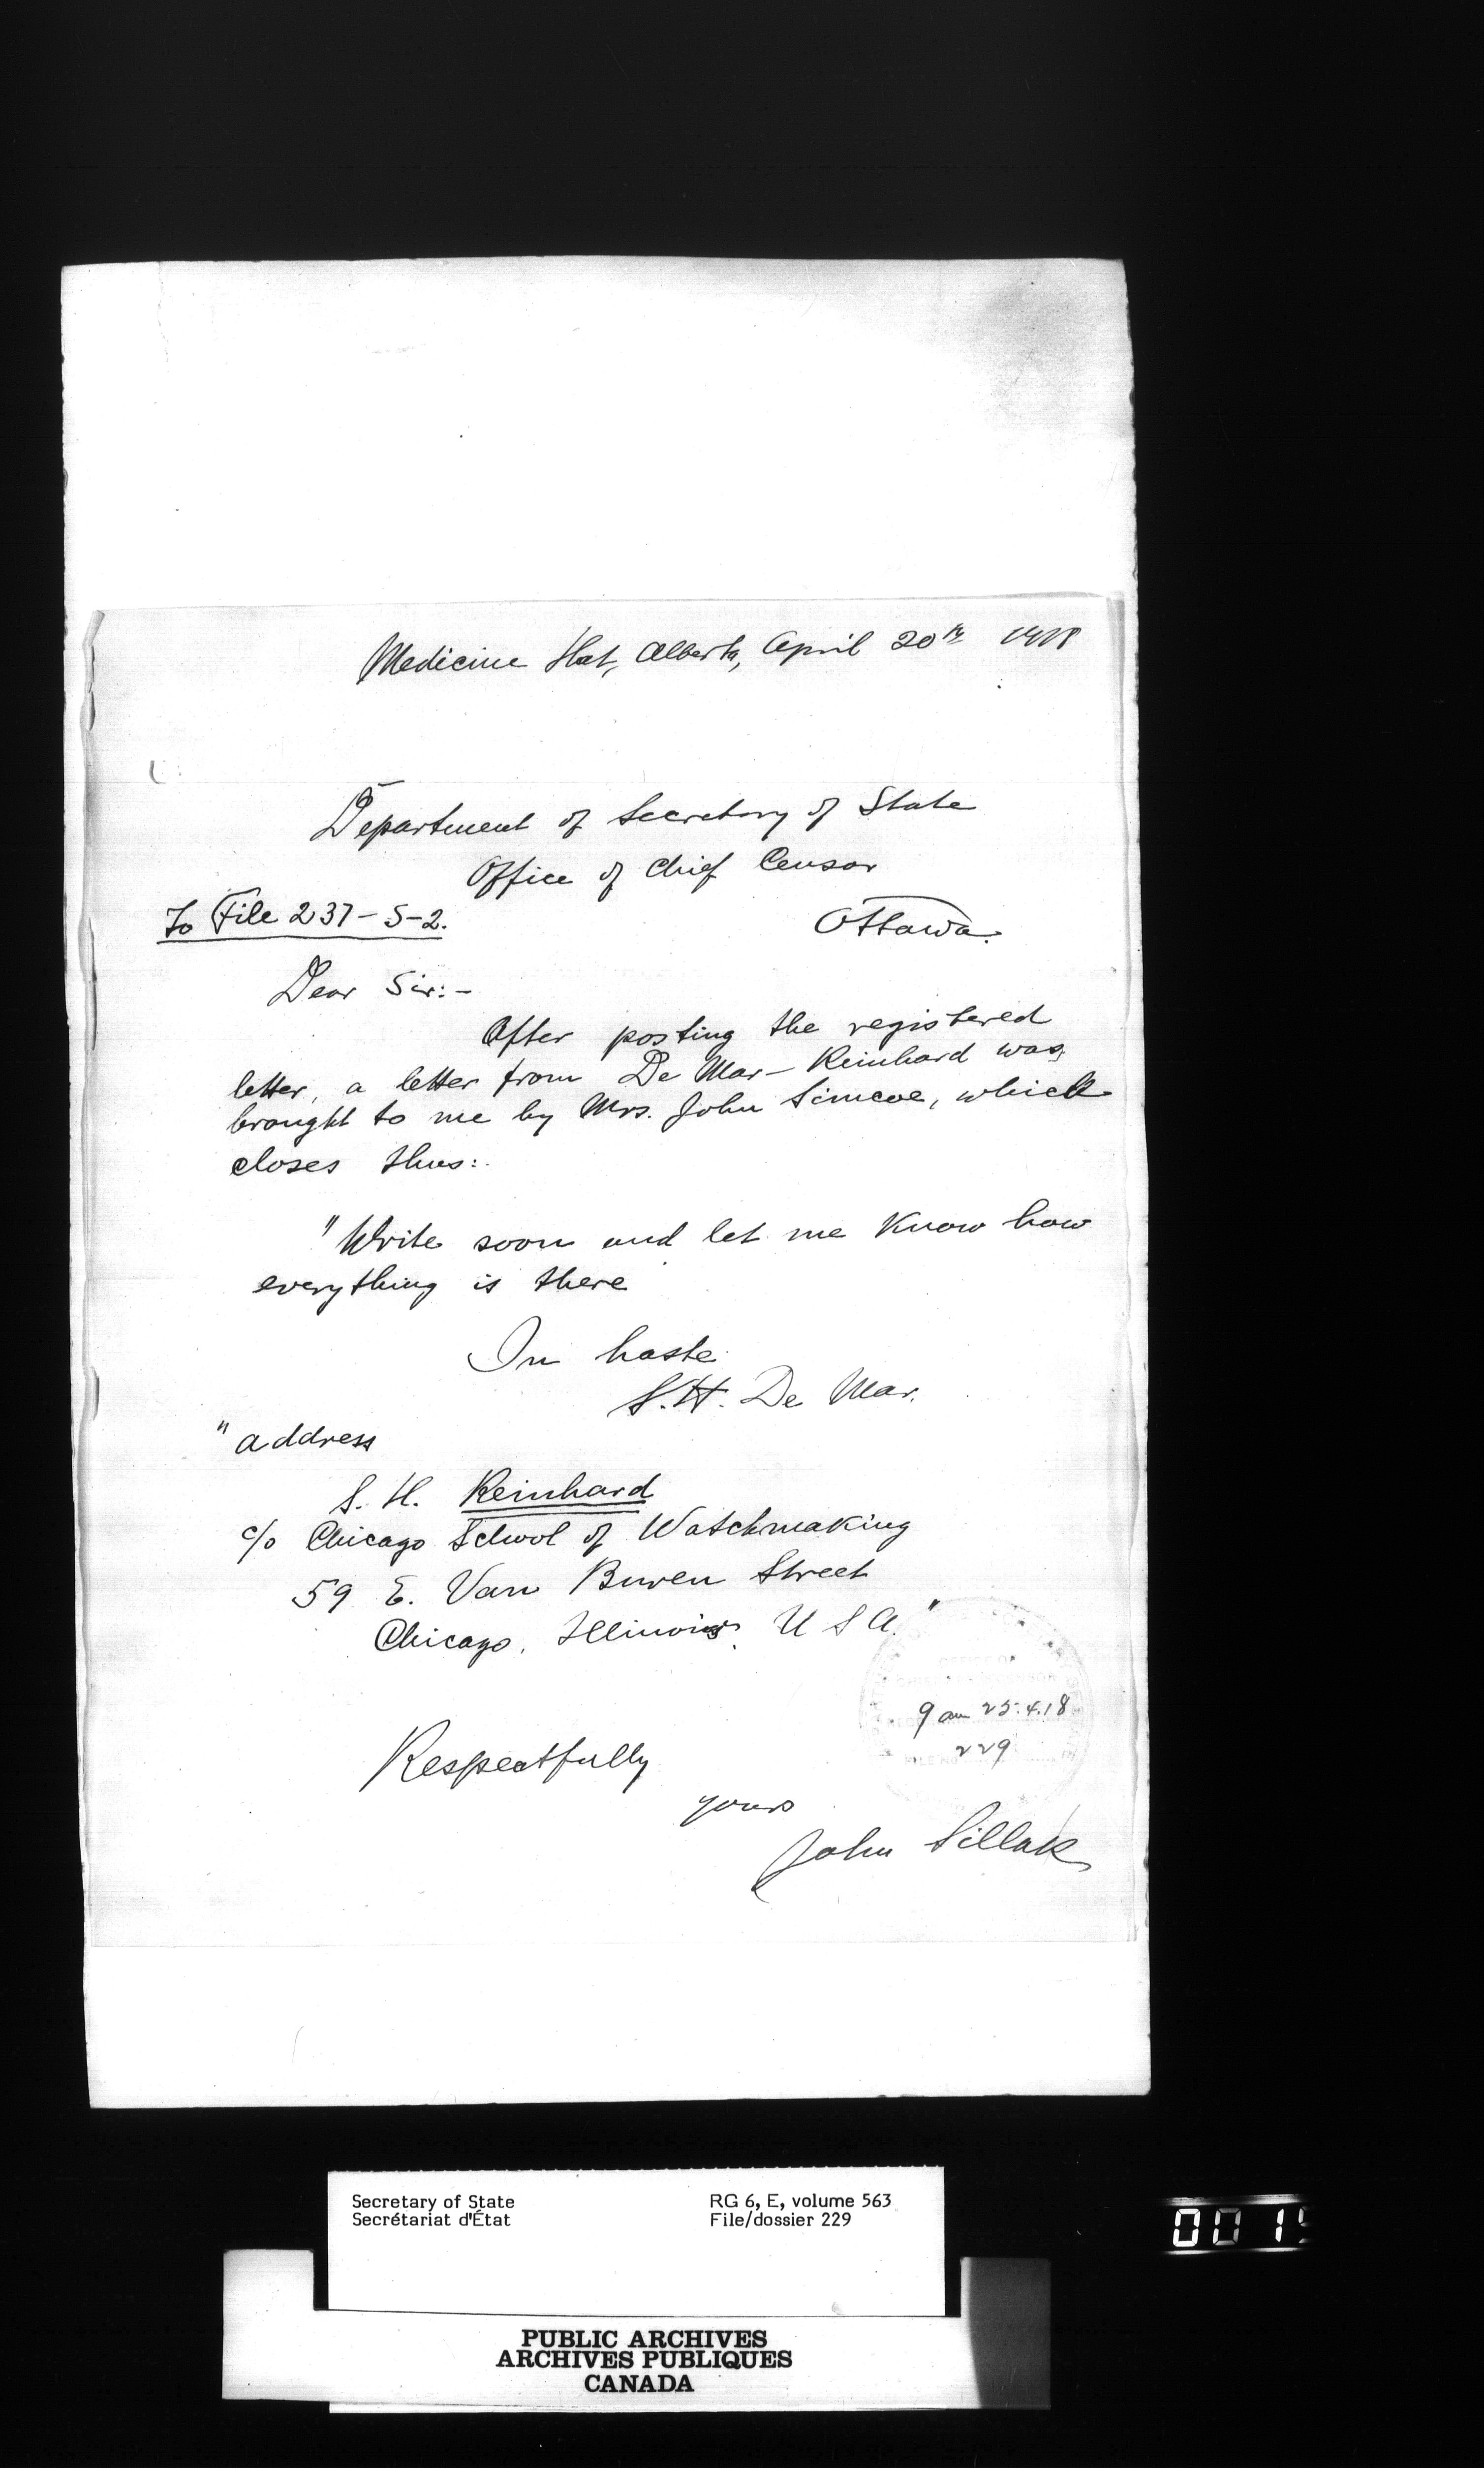 Medicine Hat, Alberta, April 20th 1918
Department of Secretary of State
Office of Chief Censor
To File 237-S-2.
Ottawa.
Dear Sir:-
After posting the registered
letter, a letter from De Mar-Reinhard was
brought to me by Mrs. John Simcoe, which
closes thus:
"Write soon and let me know how
everything is there
In haste
S.H. De Mar.
"address
S. H. Reinhard
c/o Chicago School of Watchmaking
59 E. Van Buren Street
Chicago, Illinois, U S A."
OFFICE OF
CHIEF PRESS CENSOR
9 am 25.4.18
229
Respectfully
yours
John Sillak
Secretary of State
Secrétariat d'État
RG 6, E, volume 563
File/dossier 229
PUBLIC ARCHIVES
ARCHIVES PUBLIQUES
CANADA